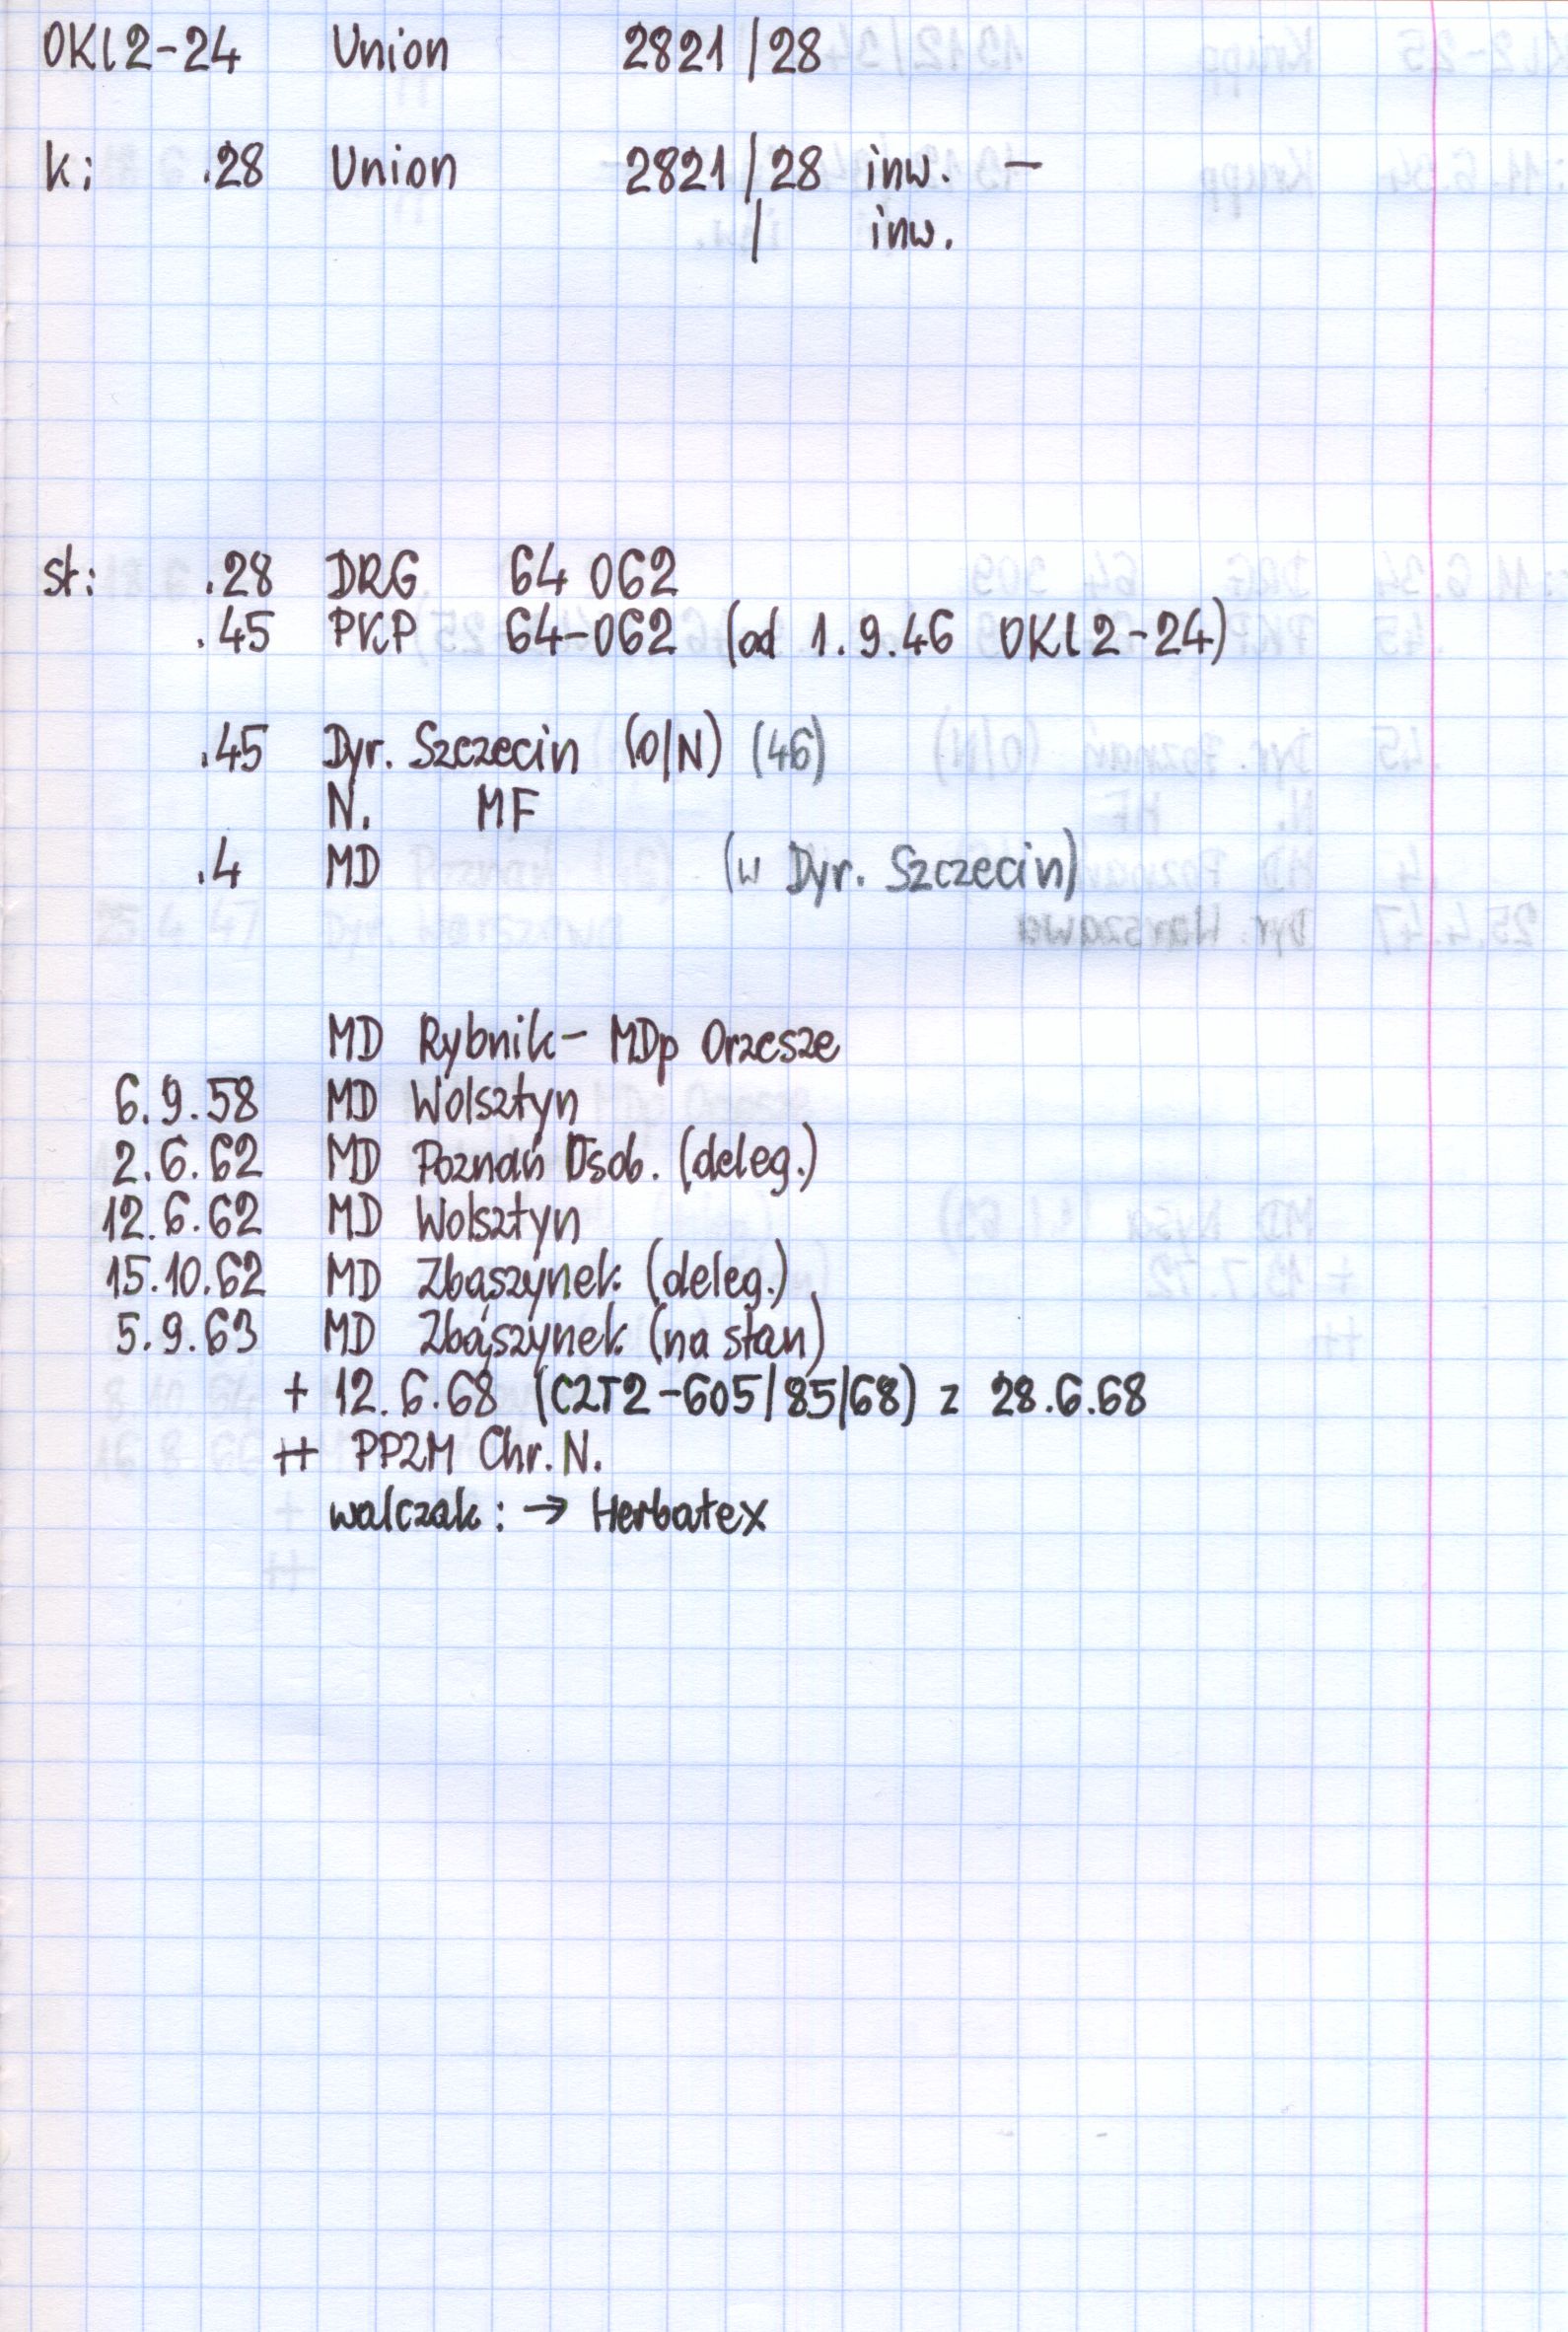 OKl2-24 Union 2821/28
k: .28 Union 2821/28 inw. —
/ inw.
st: .28 DRG 64 062
.45 PKP 64-062 (od 1.9.46 OKl2-24)
.45 Dyr. Szczecin (O/N) (46)
N. MF
.4 MD (w Dyr. Szczecin)
MD Rybnik - MDp Orzesze
6.9.58 MD Wolsztyn
2.6.62 MD Poznań Osob. (deleg.)
12.6.62 MD Wolsztyn
15.10.62 MD Zbąszynek (deleg.)
5.9.63 MD Zbąszynek (na stan)
+ 12.6.68 (CZT2-605/85/68) z 28.6.68
++ PPZM Chr. N.
walczak: → Herbatex